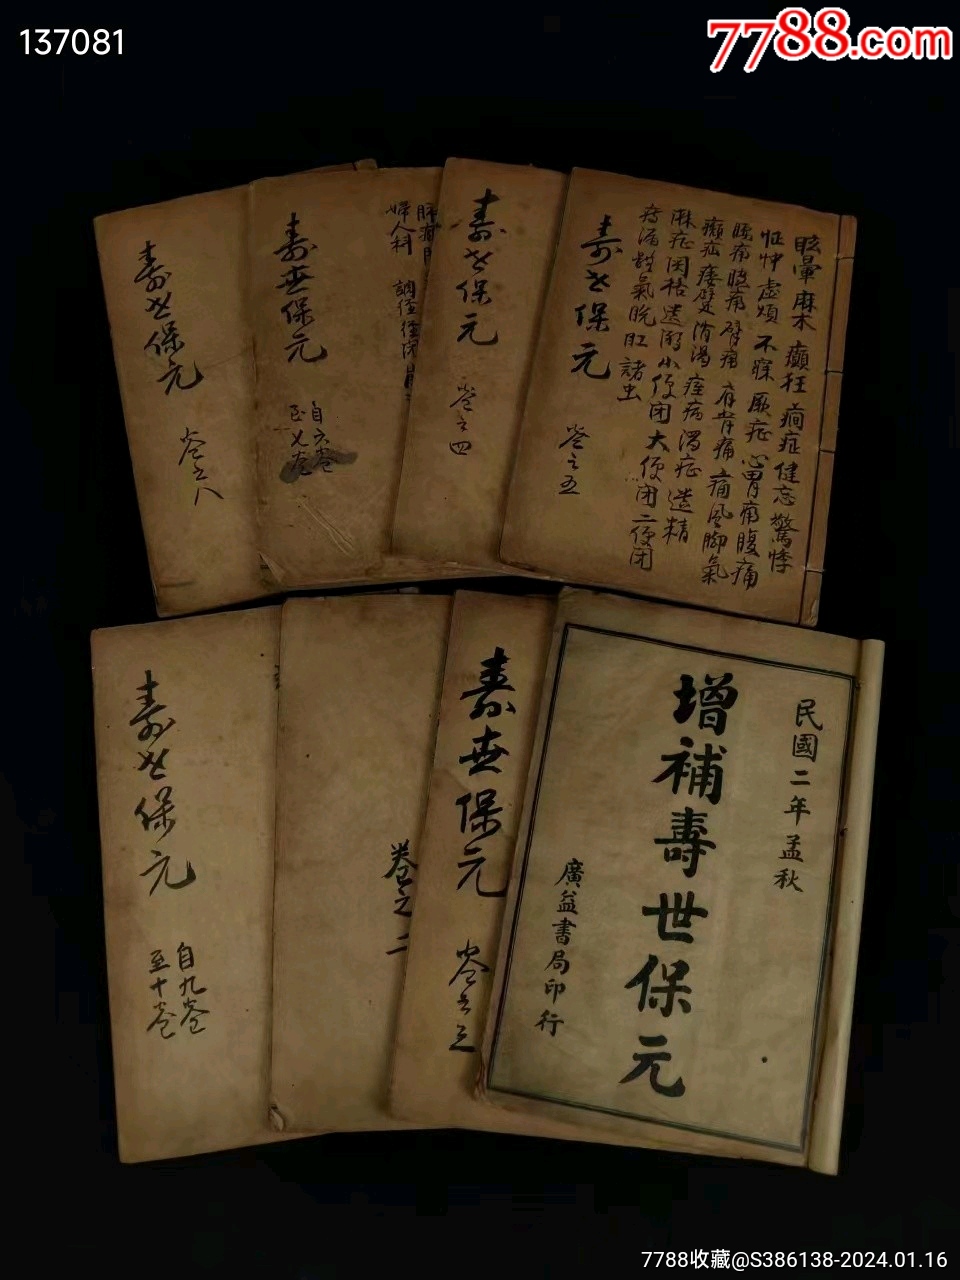 137081
7788.com
眩暈 麻木 癲狂 癇症 健忘 驚悸
怔忡 虛煩 不寐 厥症 心胃痛 腹痛
腰痛 脇痛 臂痛 肩背痛 痛風 脚氣
癩疝 痿躄 消渴 痓病 濁症 遺精
麻症 関格 遺溺 小便閉 大便閉 二便閉
痔漏 體氣 脫肛 諸虫
壽世保元
卷之五
壽世保元
卷之四
婦人科 調經 經閉
壽世保元
自六卷
至七卷
壽世保元
卷之八
民國二年孟秋
增補壽世保元
廣益書局印行
壽世保元
卷之三
卷之二
壽世保元
自九卷
至十卷
7788收藏@S386138-2024.01.16